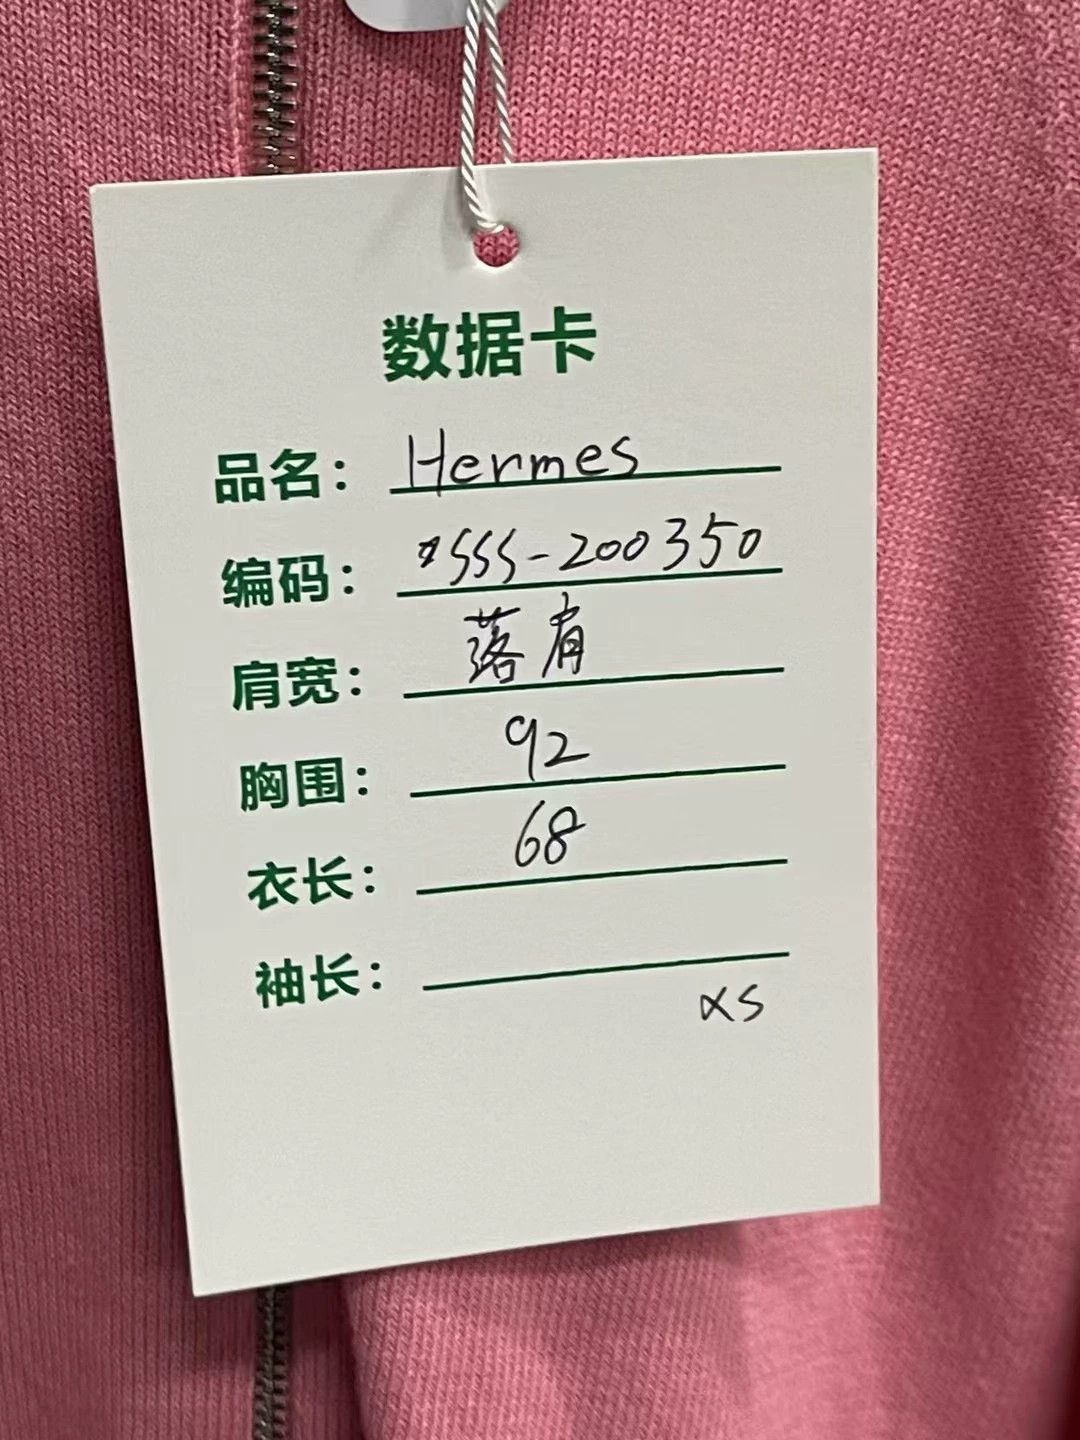 数据卡
品名： Hermes
编码： SSS-200350
肩宽： 落肩
胸围： 92
衣长： 68
袖长：
XS